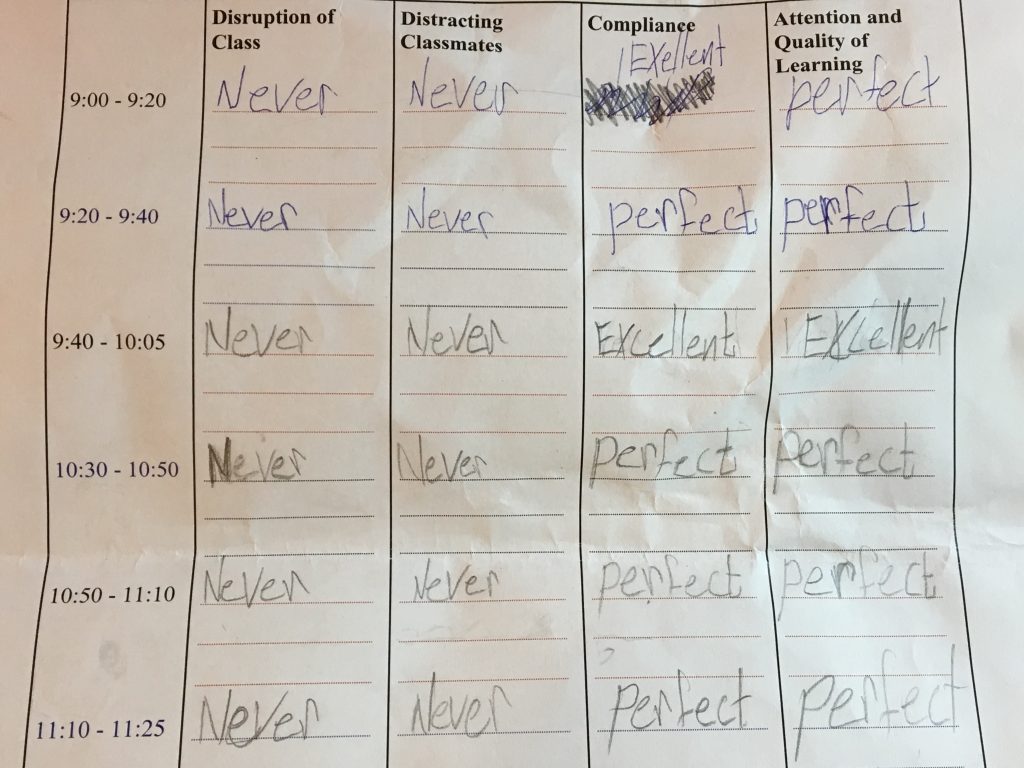 Disruption of Class Distracting Classmates Compliance Attention and Quality of Learning
9:00 - 9:20 Never Never EXellent perfect
9:20 - 9:40 Never Never perfect perfect
9:40 - 10:05 Never Never EXcellent EXcellent
10:30 - 10:50 Never Never perfect perfect
10:50 - 11:10 Never Never perfect perfect
11:10 - 11:25 Never Never perfect perfect